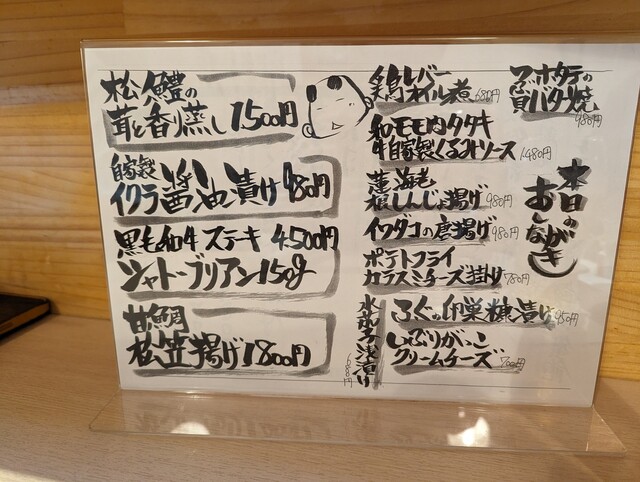 本日の
おしながき
ホタテの
貝バター焼
980円
鶏レバー
オイル煮 680円
和牛モモ肉タタキ
自家製くるみソース 1,480円
蓮根海老しんじょ揚げ 980円
イワダコの唐揚げ 980円
ポテトフライ
カラスミチーズ掛け 780円
ふぐの卵巣糠漬け 950円
いぶりがっこ
クリームチーズ 700円
水茄子浅漬け 680円
松茸と鱧の
香り蒸し 1,500円
自家製
イクラ醤油漬け 980円
黒毛和牛ステキ 4,500円
シャトーブリアン150g
甘鯛
松笠揚げ 1800円